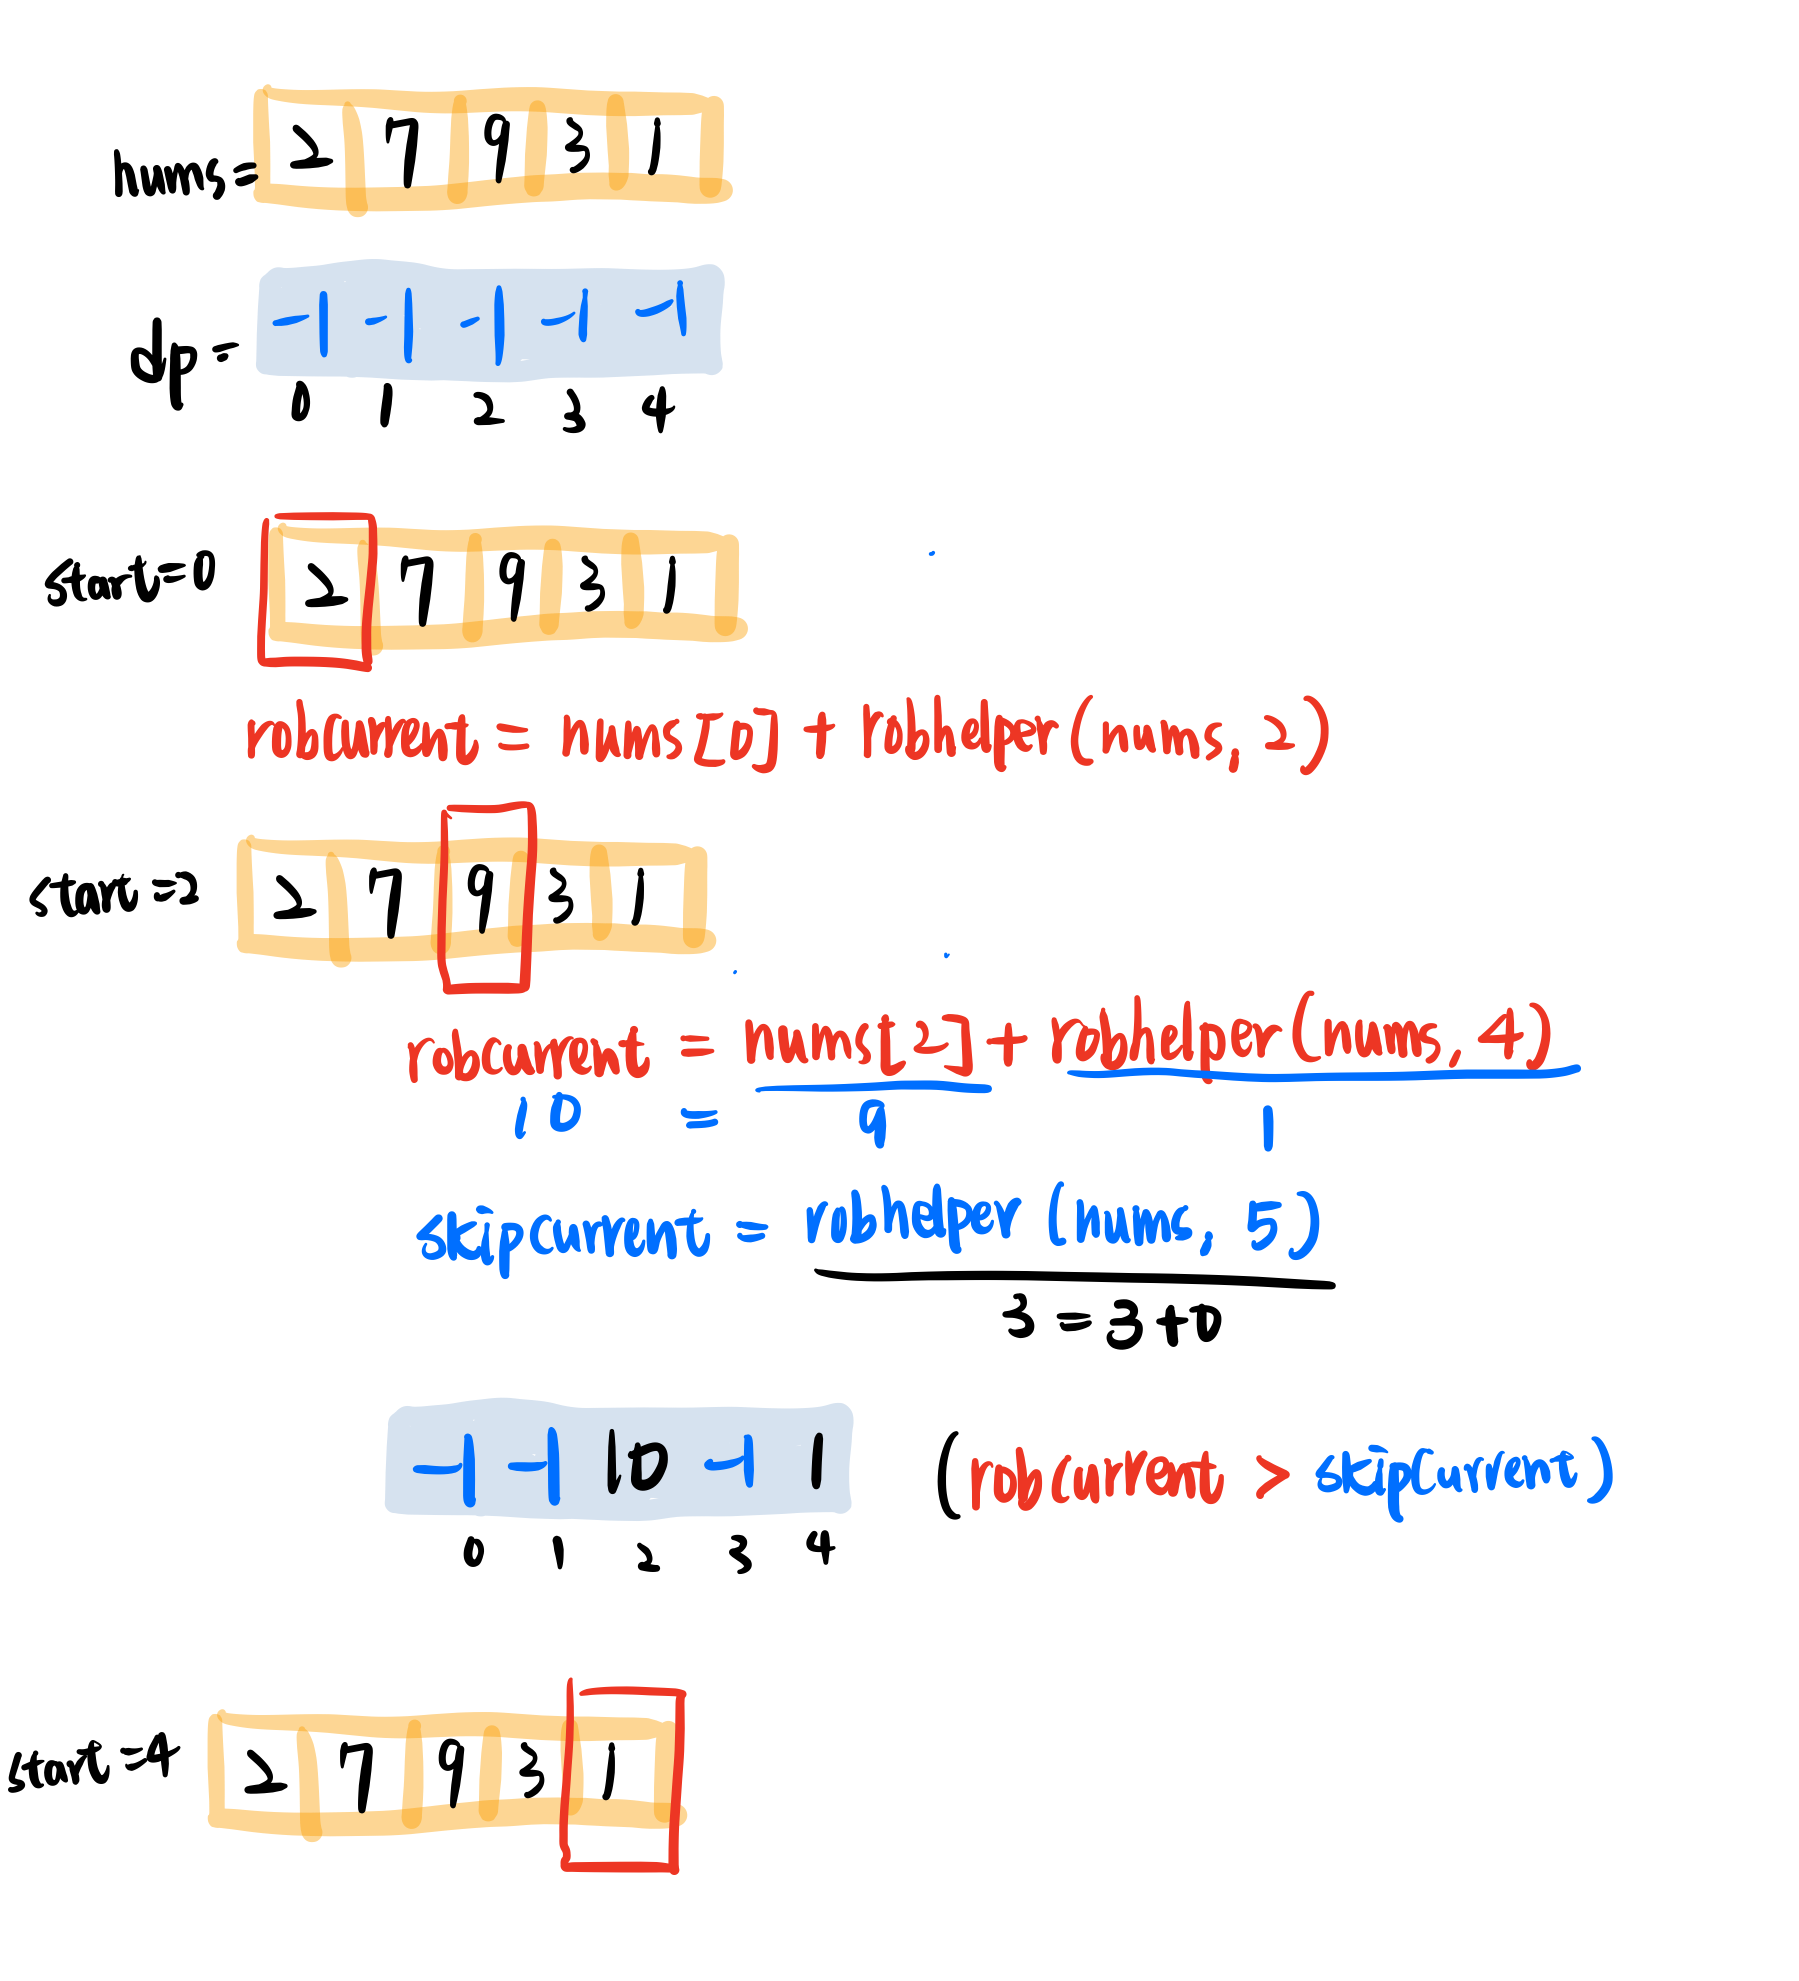 nums= 2 7 9 3 1
dp= -1 -1 -1 -1 -1
0 1 2 3 4
start=0 2 7 9 3 1
robcurrent = nums[0] + robhelper(nums, 2)
start=2 2 7 9 3 1
robcurrent = nums[2] + robhelper(nums, 4)
10 = 9 1
skipcurrent = robhelper (nums, 5)
3 = 3+0
-1 -1 10 -1 1 (robcurrent > skipcurrent)
0 1 2 3 4
start=4 2 7 9 3 1